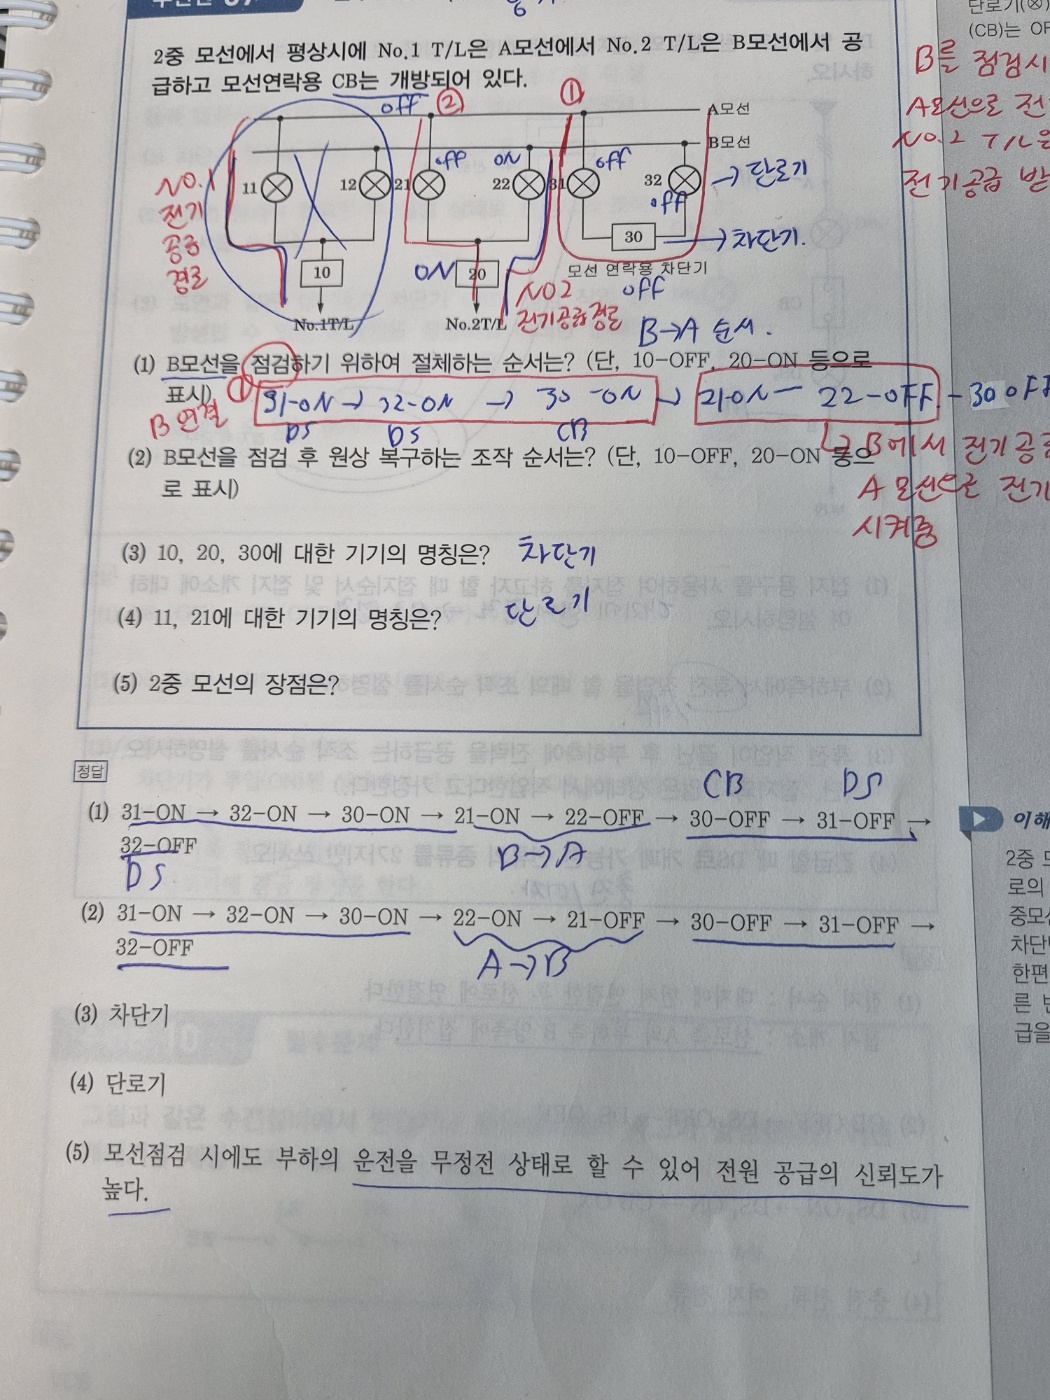 단로기(⊗)
(CB)는 OF
2중 모선에서 평상시에 No.1 T/L은 A모선에서 No.2 T/L은 B모선에서 공
급하고 모선연락용 CB는 개방되어 있다.
B를 점검시
A모선으로 전
NO.2 T/L은
전기공급 받
off ② ①
A모선
B모선
off ON off
11 12 21 22 31 32
→ 단로기
off
NO.1
전기
공급
경로
30 → 차단기.
모선 연락용 차단기
10 ON 20
NO2 off
전기공급경로
No.1T/L No.2T/L
B→A 순서.
(1) B모선을 점검하기 위하여 절체하는 순서는? (단, 10-OFF, 20-ON 등으로
표시)
① 31-ON → 32-ON → 30-ON → 21-ON - 22-OFF - 30 OFF
B 연결
DS DS CB
② B에서 전기공급
A 모선으로 전기
시켜줌
(2) B모선을 점검 후 원상 복구하는 조작 순서는? (단, 10-OFF, 20-ON 등으
로 표시)
(3) 10, 20, 30에 대한 기기의 명칭은? 차단기
(4) 11, 21에 대한 기기의 명칭은? 단로기
(5) 2중 모선의 장점은?
정답
CB DS
(1) 31-ON → 32-ON → 30-ON → 21-ON → 22-OFF → 30-OFF → 31-OFF →
32-OFF
DS B→A
(2) 31-ON → 32-ON → 30-ON → 22-ON → 21-OFF → 30-OFF → 31-OFF →
32-OFF
A→B
(3) 차단기
(4) 단로기
(5) 모선점검 시에도 부하의 운전을 무정전 상태로 할 수 있어 전원 공급의 신뢰도가
높다.
이해
로의
중모선
차단
한편
른
급을